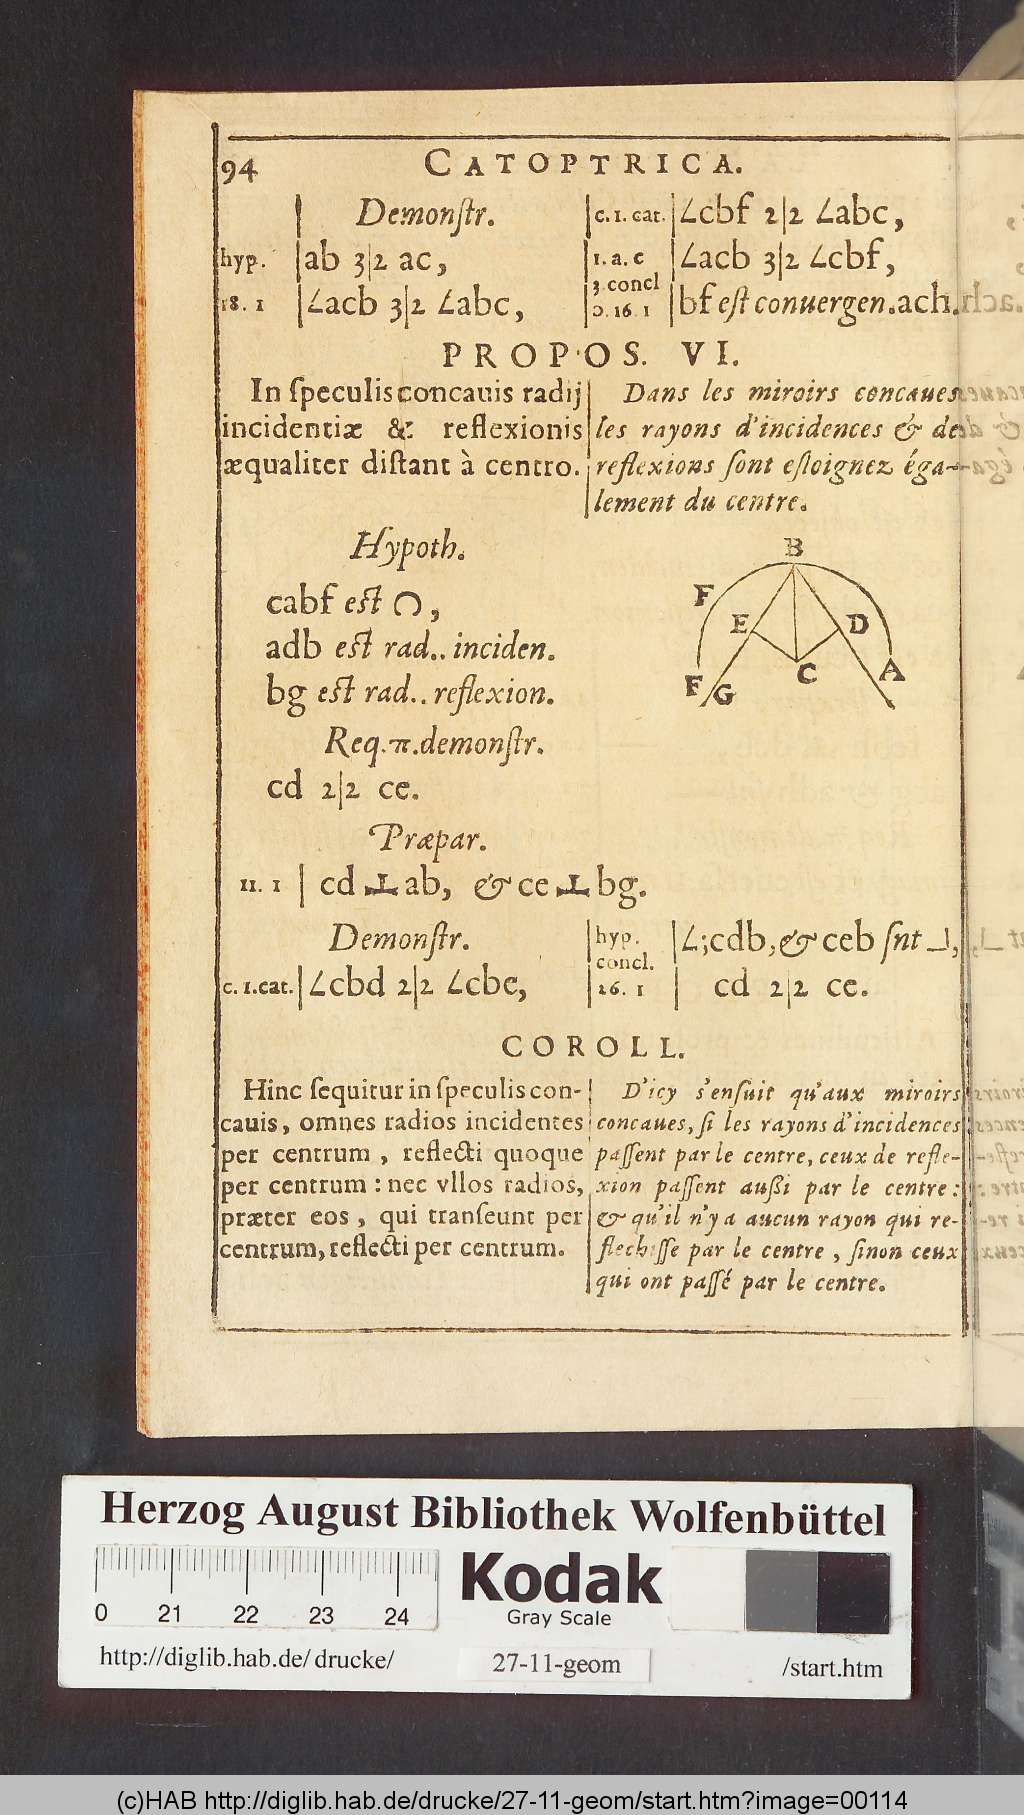 94 CATOPTRICA.
Demonſtr.
hyp. | ab 3|2 ac,
18. 1 | ∠acb 3|2 ∠abc,
c. 1. cat. | ∠cbf 2|2 ∠abc,
1. a. c | ∠acb 3|2 ∠cbf,
3. concl
ɔ. 16. 1 | bf eſt conuergen. ach.
PROPOS. VI.
In ſpeculis concauis radij
incidentiæ & reflexionis
æqualiter diſtant à centro.
Dans les miroirs concaues
les rayons d'incidences & de
reflexions ſont eſloignez éga-
lement du centre.
Hypoth.
cabf eſt ◠,
adb eſt rad.. inciden.
bg eſt rad.. reflexion.
Req. π. demonſtr.
cd 2|2 ce.
B
F
E D
C A
F G
Præpar.
11. 1 | cd ⊥ ab, & ce ⊥ bg.
Demonſtr.
c. 1. cat. | ∠cbd 2|2 ∠cbe,
hyp. | ∠; cdb, & ceb ſnt ⅃,
concl.
26. 1 | cd 2|2 ce.
COROLL.
Hinc ſequitur in ſpeculis con-
cauis, omnes radios incidentes
per centrum, reflecti quoque
per centrum: nec vllos radios,
præter eos, qui tranſeunt per
centrum, reflecti per centrum.
D'icy s'enſuit qu'aux miroirs
concaues, ſi les rayons d'incidences
paſſent par le centre, ceux de refle-
xion paſſent außi par le centre:
& qu'il n'y a aucun rayon qui re-
flechiſſe par le centre, ſinon ceux
qui ont paſſé par le centre.
Herzog August Bibliothek Wolfenbüttel
0 21 22 23 24
Kodak
Gray Scale
http://diglib.hab.de/ drucke/ 27-11-geom /start.htm
(c)HAB http://diglib.hab.de/drucke/27-11-geom/start.htm?image=00114